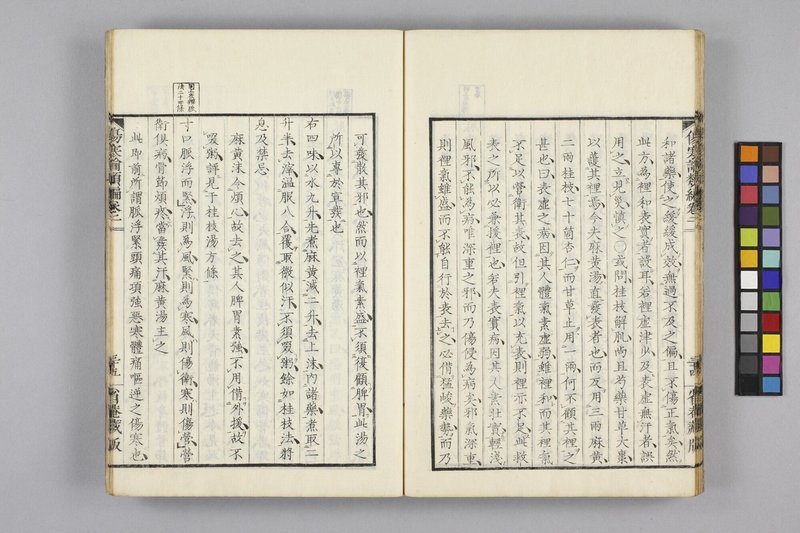 和諸藥使之緩緩成效無過不及之偏且不傷正氣矣然
此方為裡和表實者設耳若裡虛津少及表虛無汗者誤
用之立見災慎之○或問桂枝解肌而且芍藥甘草大棗
以護其裡焉今夫麻黄湯直發表者也而反用三兩麻黄
二兩桂枝七十箇杏仁而甘草止用一兩何不顧其裡之
甚也曰表虛之病因其人體氣素虛弱雖裡和而其裡氣
不足以營衛其表故但引裡氣以充表則裡亦不足此救
表之所以必兼援裡也若夫表實病因其人素壯實輕淺
風邪不能為病唯深重之邪而乃傷侵為病矣邪氣深重
則裡氣雖盛而不能自行於表去之必借猛峻藥勢而乃
傷寒論類編卷二
三十四
省菴藏版
可發散其邪也然而以裡氣素盛不須復顧脾胃此湯之
所以專於單發也
右四味以水九升先煮麻黄減二升去上沫內諸藥煮取二
升半去滓溫服八合覆取微似汗不須啜粥餘如桂枝法將
息及禁忌
麻黄沫令煩心故去之其人脾胃素強不用借外援故不
啜粥詳見于桂枝湯方條
寸口脈浮而緊浮則為風緊則為寒風則傷衛寒則傷營營
衛俱病骨節煩疼當發其汗麻黄湯主之
此即前所謂脈浮緊頭痛項強惡寒體痛嘔逆之傷寒也
傷寒論類編卷二
三十五
省菴藏版